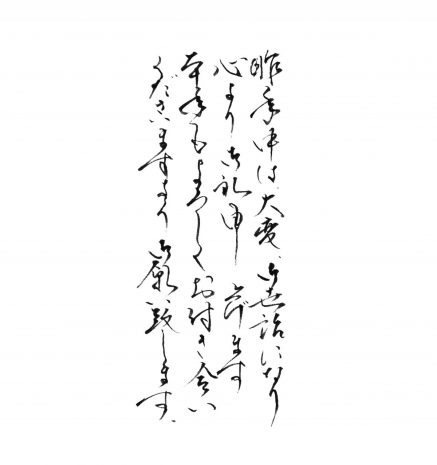 昨年中は大変御世話になり
心より御礼申し上げます
本年もよろしくお付き合い
くださいますよう御願い致します